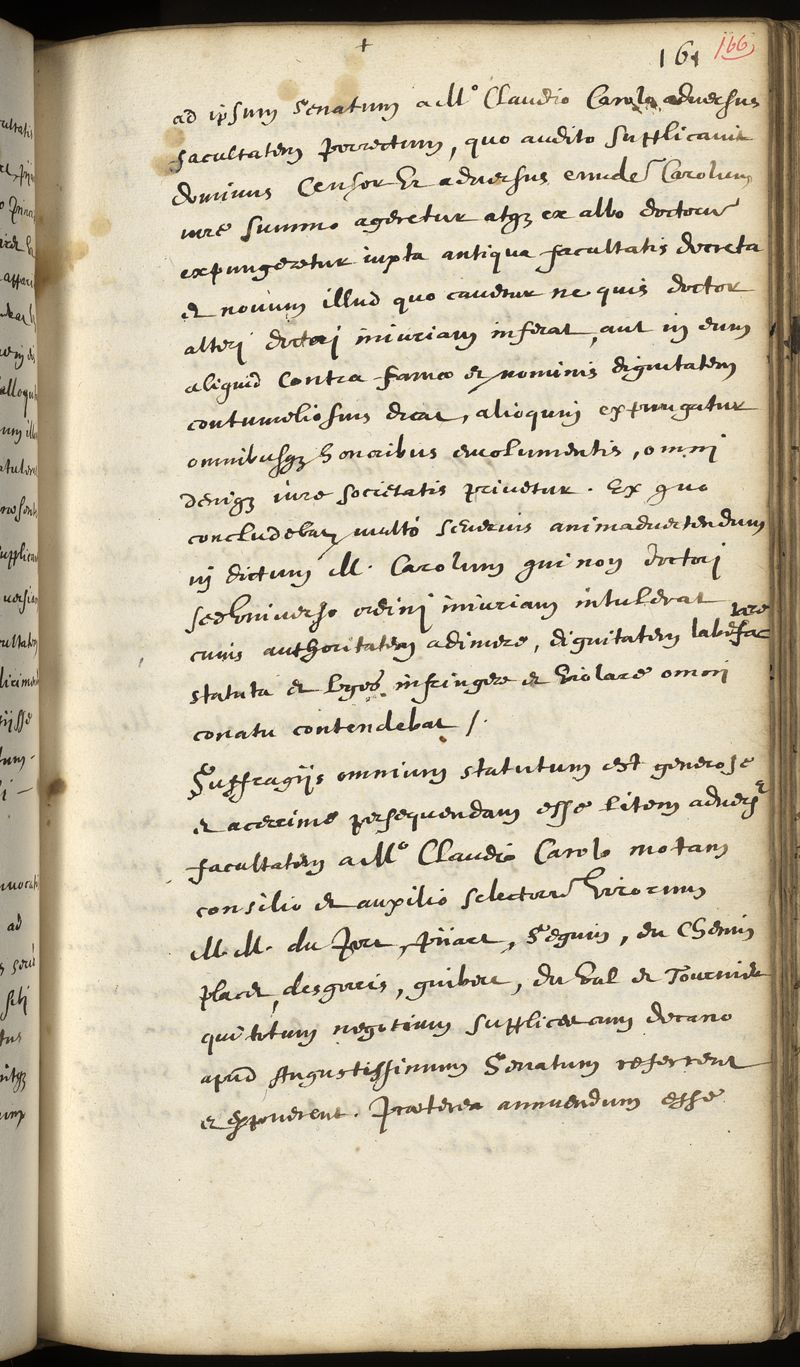 161 166
ad ipsum Senatum a M.º Claudio Carolo adversus
facultatem porrectum, quo audito supplicavit
dominus Censor Ut adversus eumdẽ Carolum
iure summo ageretur atqȝ ex albo doctorũ
expungeretur iuxta antiqua facultatis decreta
et novum illud quo cavetur ne quis doctor
alteri doctori iniuriam inferat, aut in eum
aliquid contra famæ et nominis dignitatem
contumeliosius dicat, alioquin expungatur
omnibusqȝ honoribus emolumentis, omni
deniqȝ iure societatis privetur. Ex quo
concludebat multò severius animadvertendum
in dictum M. Carolum qui non doctori
sed Universo ordini iniuriam intulerat
cuius authoritatem adimere, dignitatem labefactare
statuta et leges infringere et Violare omni
conatu contendebat /.
Suffragijs omnium statutum est generose
et acerrime persequendam esse litem advers9
facultatem a M.º Claudio Carolo motam
consilio et auxilio selectorũ Virorum
M. M. du Port, pijart, Seguin, du Chemin
placet, desgorris, guibert, du Val et Tournier
qui totum negotium supplices cum decano
apud Augustissimum Senatum referrent
et exponerent. Præterea annuendum esse